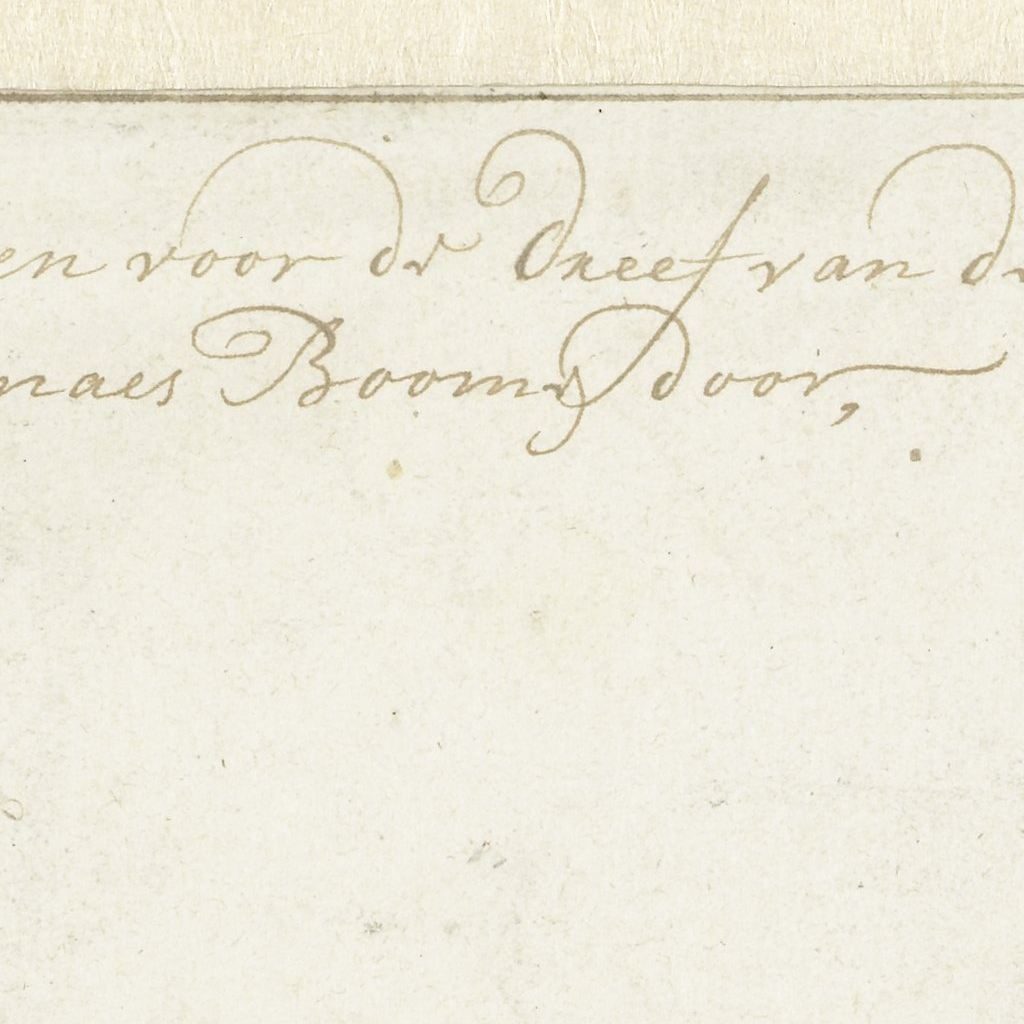 en voor de dreef van de
naes Boomes door,